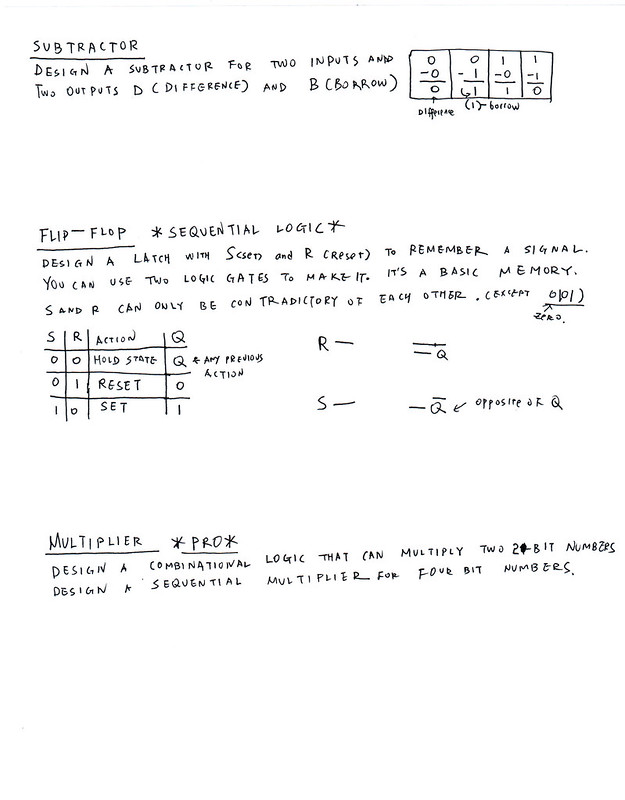 SUBTRACTOR
DESIGN A SUBTRACTOR FOR TWO INPUTS AND
TWO OUTPUTS D (DIFFERENCE) AND B (BORROW)
0 0 1 1
-0 -1 -0 -1
0 1 1 0
Difference (1)- borrow
FLIP-FLOP *SEQUENTIAL LOGIC*
DESIGN A LATCH WITH S(set) and R (reset) TO REMEMBER A SIGNAL.
YOU CAN USE TWO LOGIC GATES TO MAKE IT. IT'S A BASIC MEMORY.
S AND R CAN ONLY BE CONTRADICTORY OF EACH OTHER. (EXCEPT 0|0|)
ZERO.
S R ACTION Q
0 0 HOLD STATE Q ← ANY PREVIOUS ACTION
0 1 RESET 0
1 0 SET 1
R — — Q
S — — Q̅ ← OPPOSITE OF Q
MULTIPLIER *PRO*
DESIGN A COMBINATIONAL LOGIC THAT CAN MULTIPLY TWO 2-BIT NUMBERS
DESIGN A SEQUENTIAL MULTIPLIER FOR FOUR BIT NUMBERS.